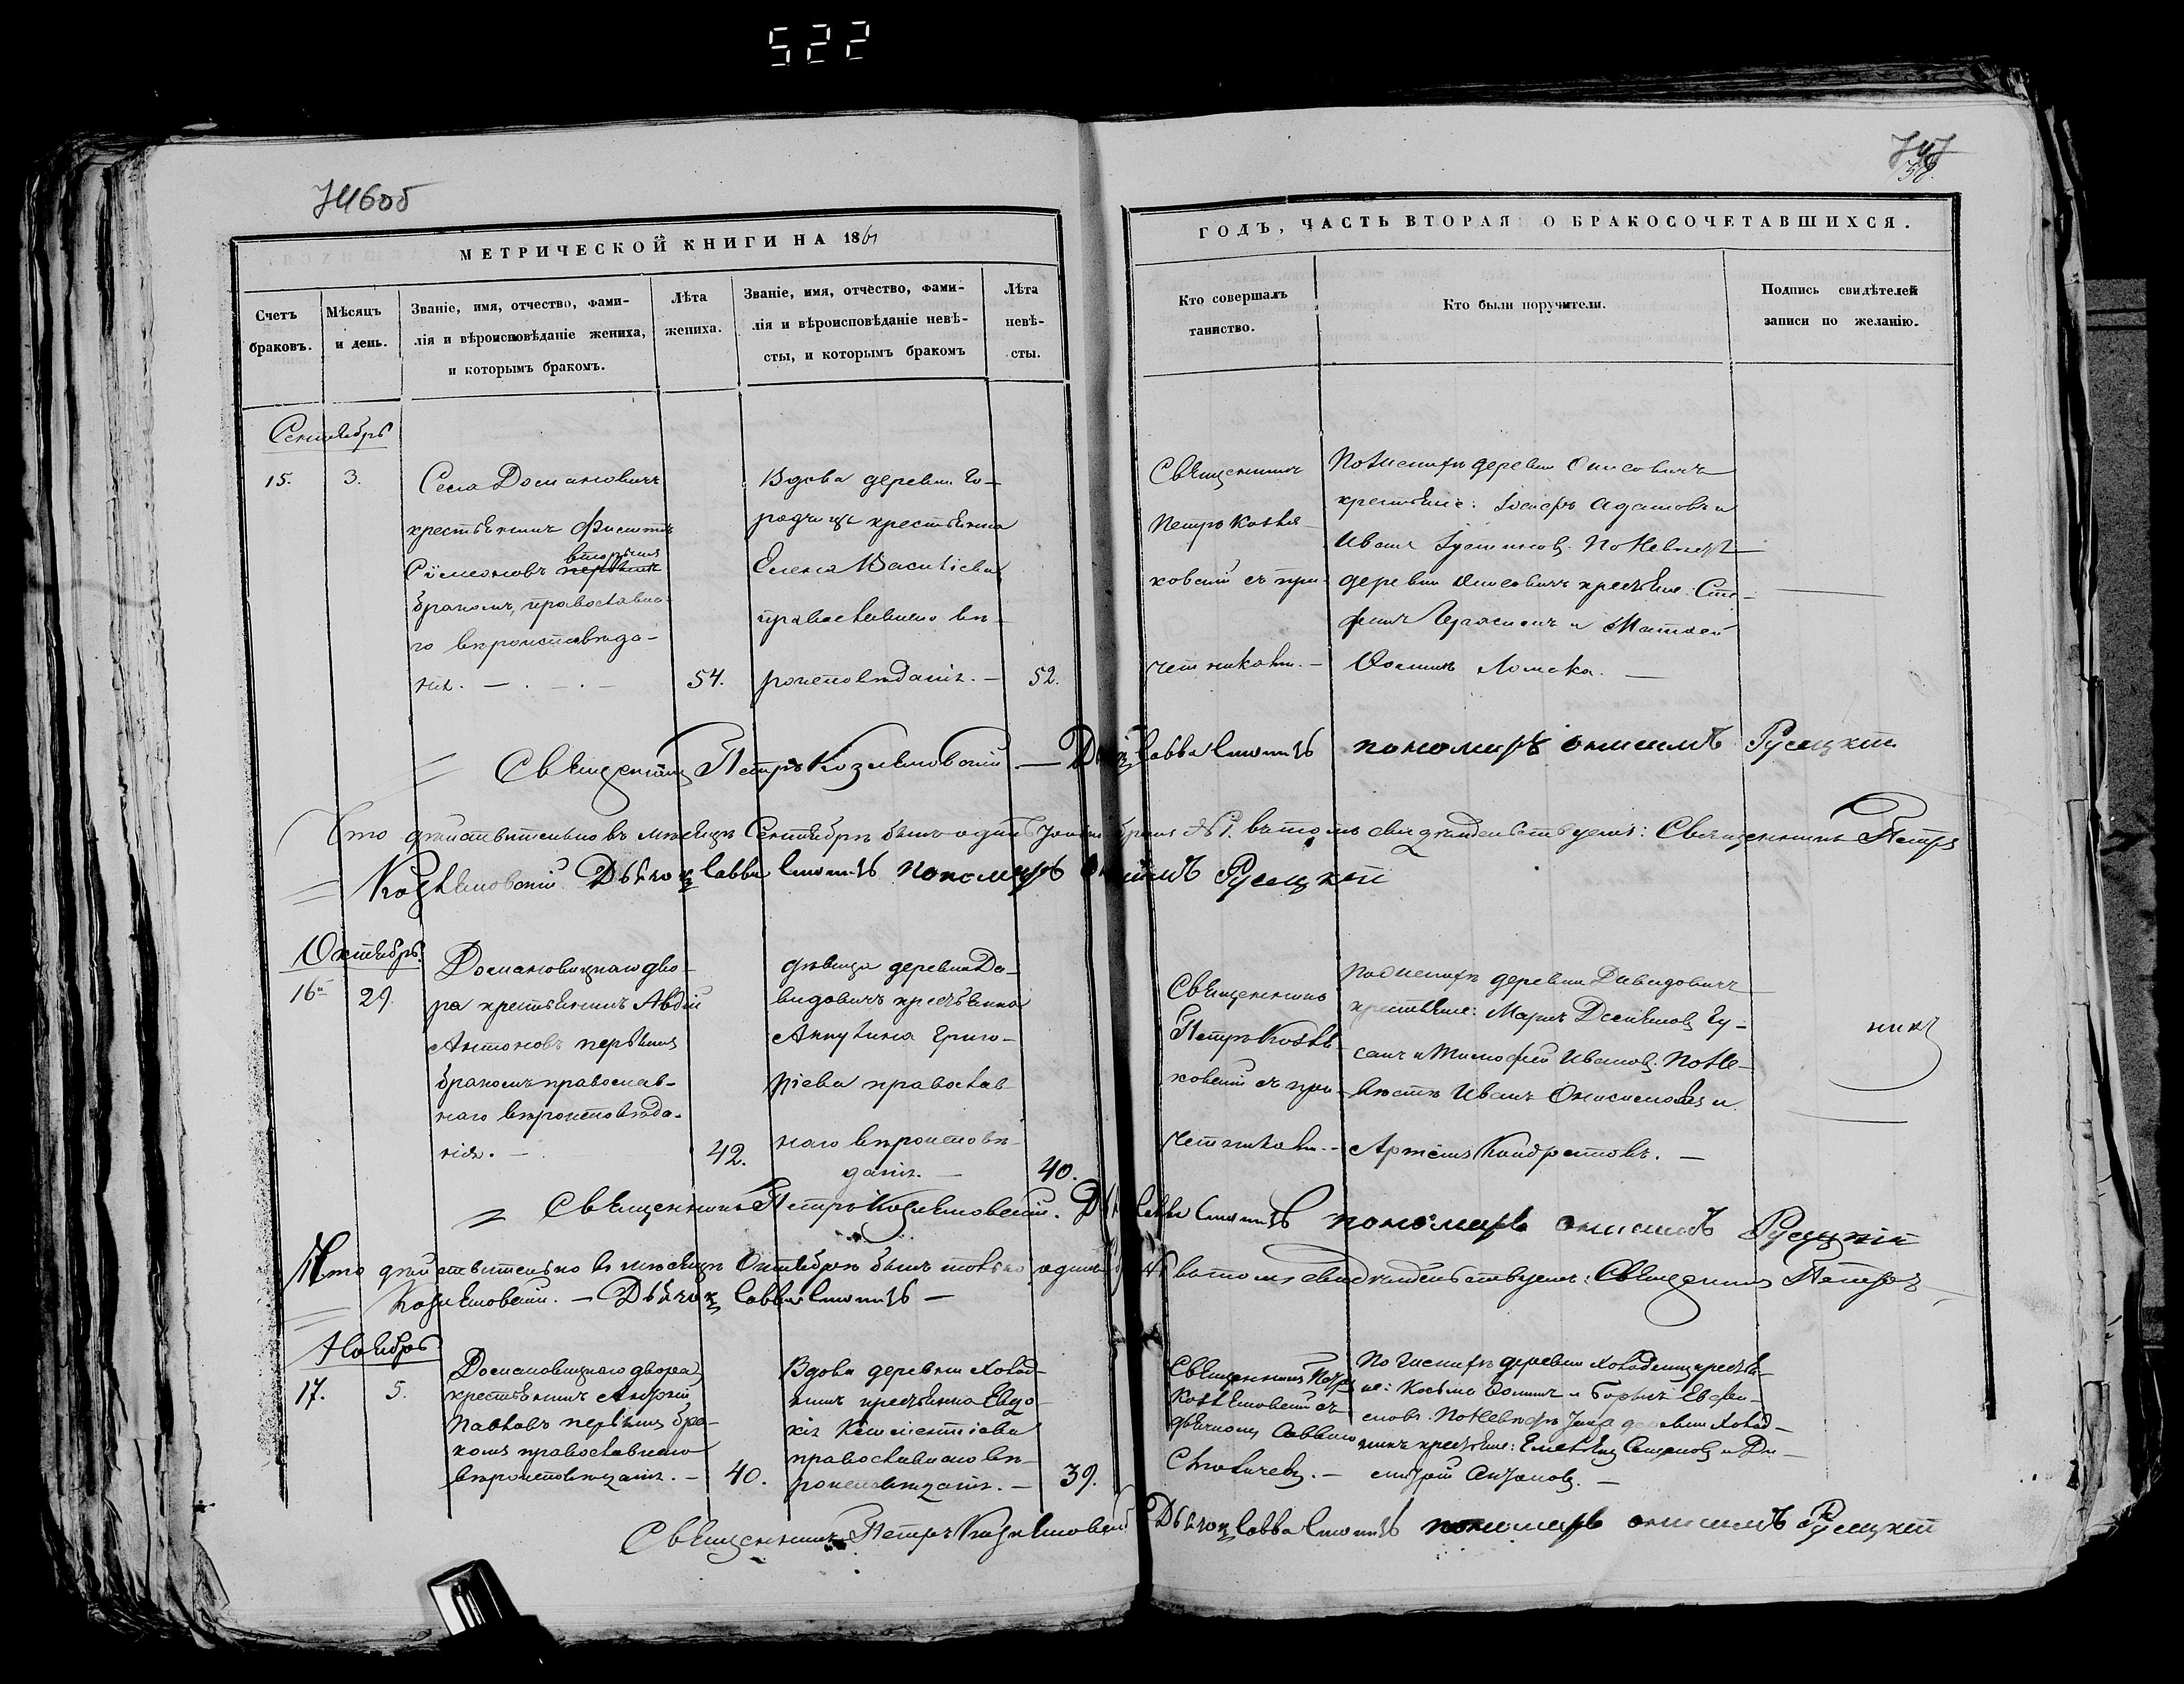 522
746об
747
МЕТРИЧЕСКОЙ КНИГИ НА 1861
ГОДЪ, ЧАСТЬ ВТОРАЯ О БРАКОСОЧЕТАВШИХСЯ.
Счетъ
браковъ.
Мѣсяцъ
и день.
Званіе, имя, отчество, фами-
лія и вѣроисповѣданіе жениха,
и которымъ бракомъ.
Лѣта
жениха.
Званіе, имя, отчество, фами-
лія и вѣроисповѣданіе невѣ-
сты, и которымъ бракомъ
Лѣта
невѣ-
сты.
Кто совершалъ
таинство.
Кто были поручители.
Подпись свидѣтелей
записи по желанію.
Сентябрь
15.
3.
Села Домановичъ
крестьянинъ
Сімеоновъ вторымъ первымъ
бракомъ, православна-
го вѣроисповѣда-
нія.
54.
Вдова деревни Го-
родчицъ крестьянка
Елена Василіева
православнаго вѣ-
роисповѣданія.
52.
Священникъ
Петръ Козля-
ковскій съ при-
четниками.
По женихѣ деревни
крестьяне: Іосифъ Адамовъ и
Иванъ Іустиновъ. По невѣстѣ
деревни крестьяне: Сте-
фанъ Герасимъ и Матѳей
Ѳоминъ Ломака.
Священникъ Петръ Козляковскій — Дьячокъ Савва пономарь Онисимъ Русецкій
Что дѣйствительно въ мѣсяцѣ Сентябрѣ былъ одинъ бракъ №1. въ томъ свидѣтельствуемъ: Священникъ Петръ
Козляковскій Дьячокъ Савва пономарь Онисимъ Русецкій
Октябрь.
16й
29.
Домановицкаго дво-
ра крестьянинъ Авдій
Антоновъ первымъ
бракомъ православ-
наго вѣроисповѣда-
нія.
42.
дѣвица деревни Да-
видовичъ крестьянка
Акулина Григо-
ріева православ-
наго вѣроисповѣ-
данія.
40.
Священникъ
Петръ Козля-
ковскій съ при-
четниками.
По женихѣ деревни Давидовичъ
крестьяне: Маркъ Гу-
сакъ и Тимофей Ивановъ. По не-
вѣстѣ Иванъ Онисимовъ и
Артемъ Кондратовъ.
Священникъ Петръ Козляковскій. Савва пономарь Онисимъ Русецкій
Что дѣйствительно въ мѣсяцѣ Октябрѣ былъ только одинъ въ томъ свидѣтельствуемъ: Священникъ Петръ
Козляковскій. — Дьячокъ Савва
Ноябрь
17.
5.
Домановицкаго двора
крестьянинъ
Павловъ первымъ бра-
комъ православнаго
вѣроисповѣданія.
40.
Вдова деревни Холод-
никъ крестьянка Евдо-
кія Климентіева
православнаго вѣ-
роисповѣданія.
39.
Священникъ Петръ
Козляковскій съ
дьячкомъ Саввою
По женихѣ деревни крестья-
не: Косьма Ѳоминъ и Борисъ Ефи-
мовъ. По невѣстѣ деревни Холод-
никъ крестьяне: Емельянъ Семеновъ и Ди-
митрій Антоновъ.
Священникъ Петръ Козляковскій Дьячокъ Савва пономарь Онисимъ Русецкій